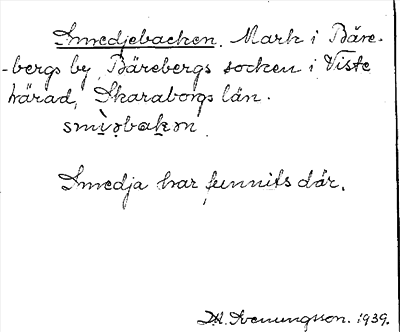 Smedjebacken. Mark i Bäre-
-bergs by, Bärebergs socken i Viste
härad, Skaraborgs län.
smìəbakən
Smedja har funnits där.
Svenungsson. 1939.